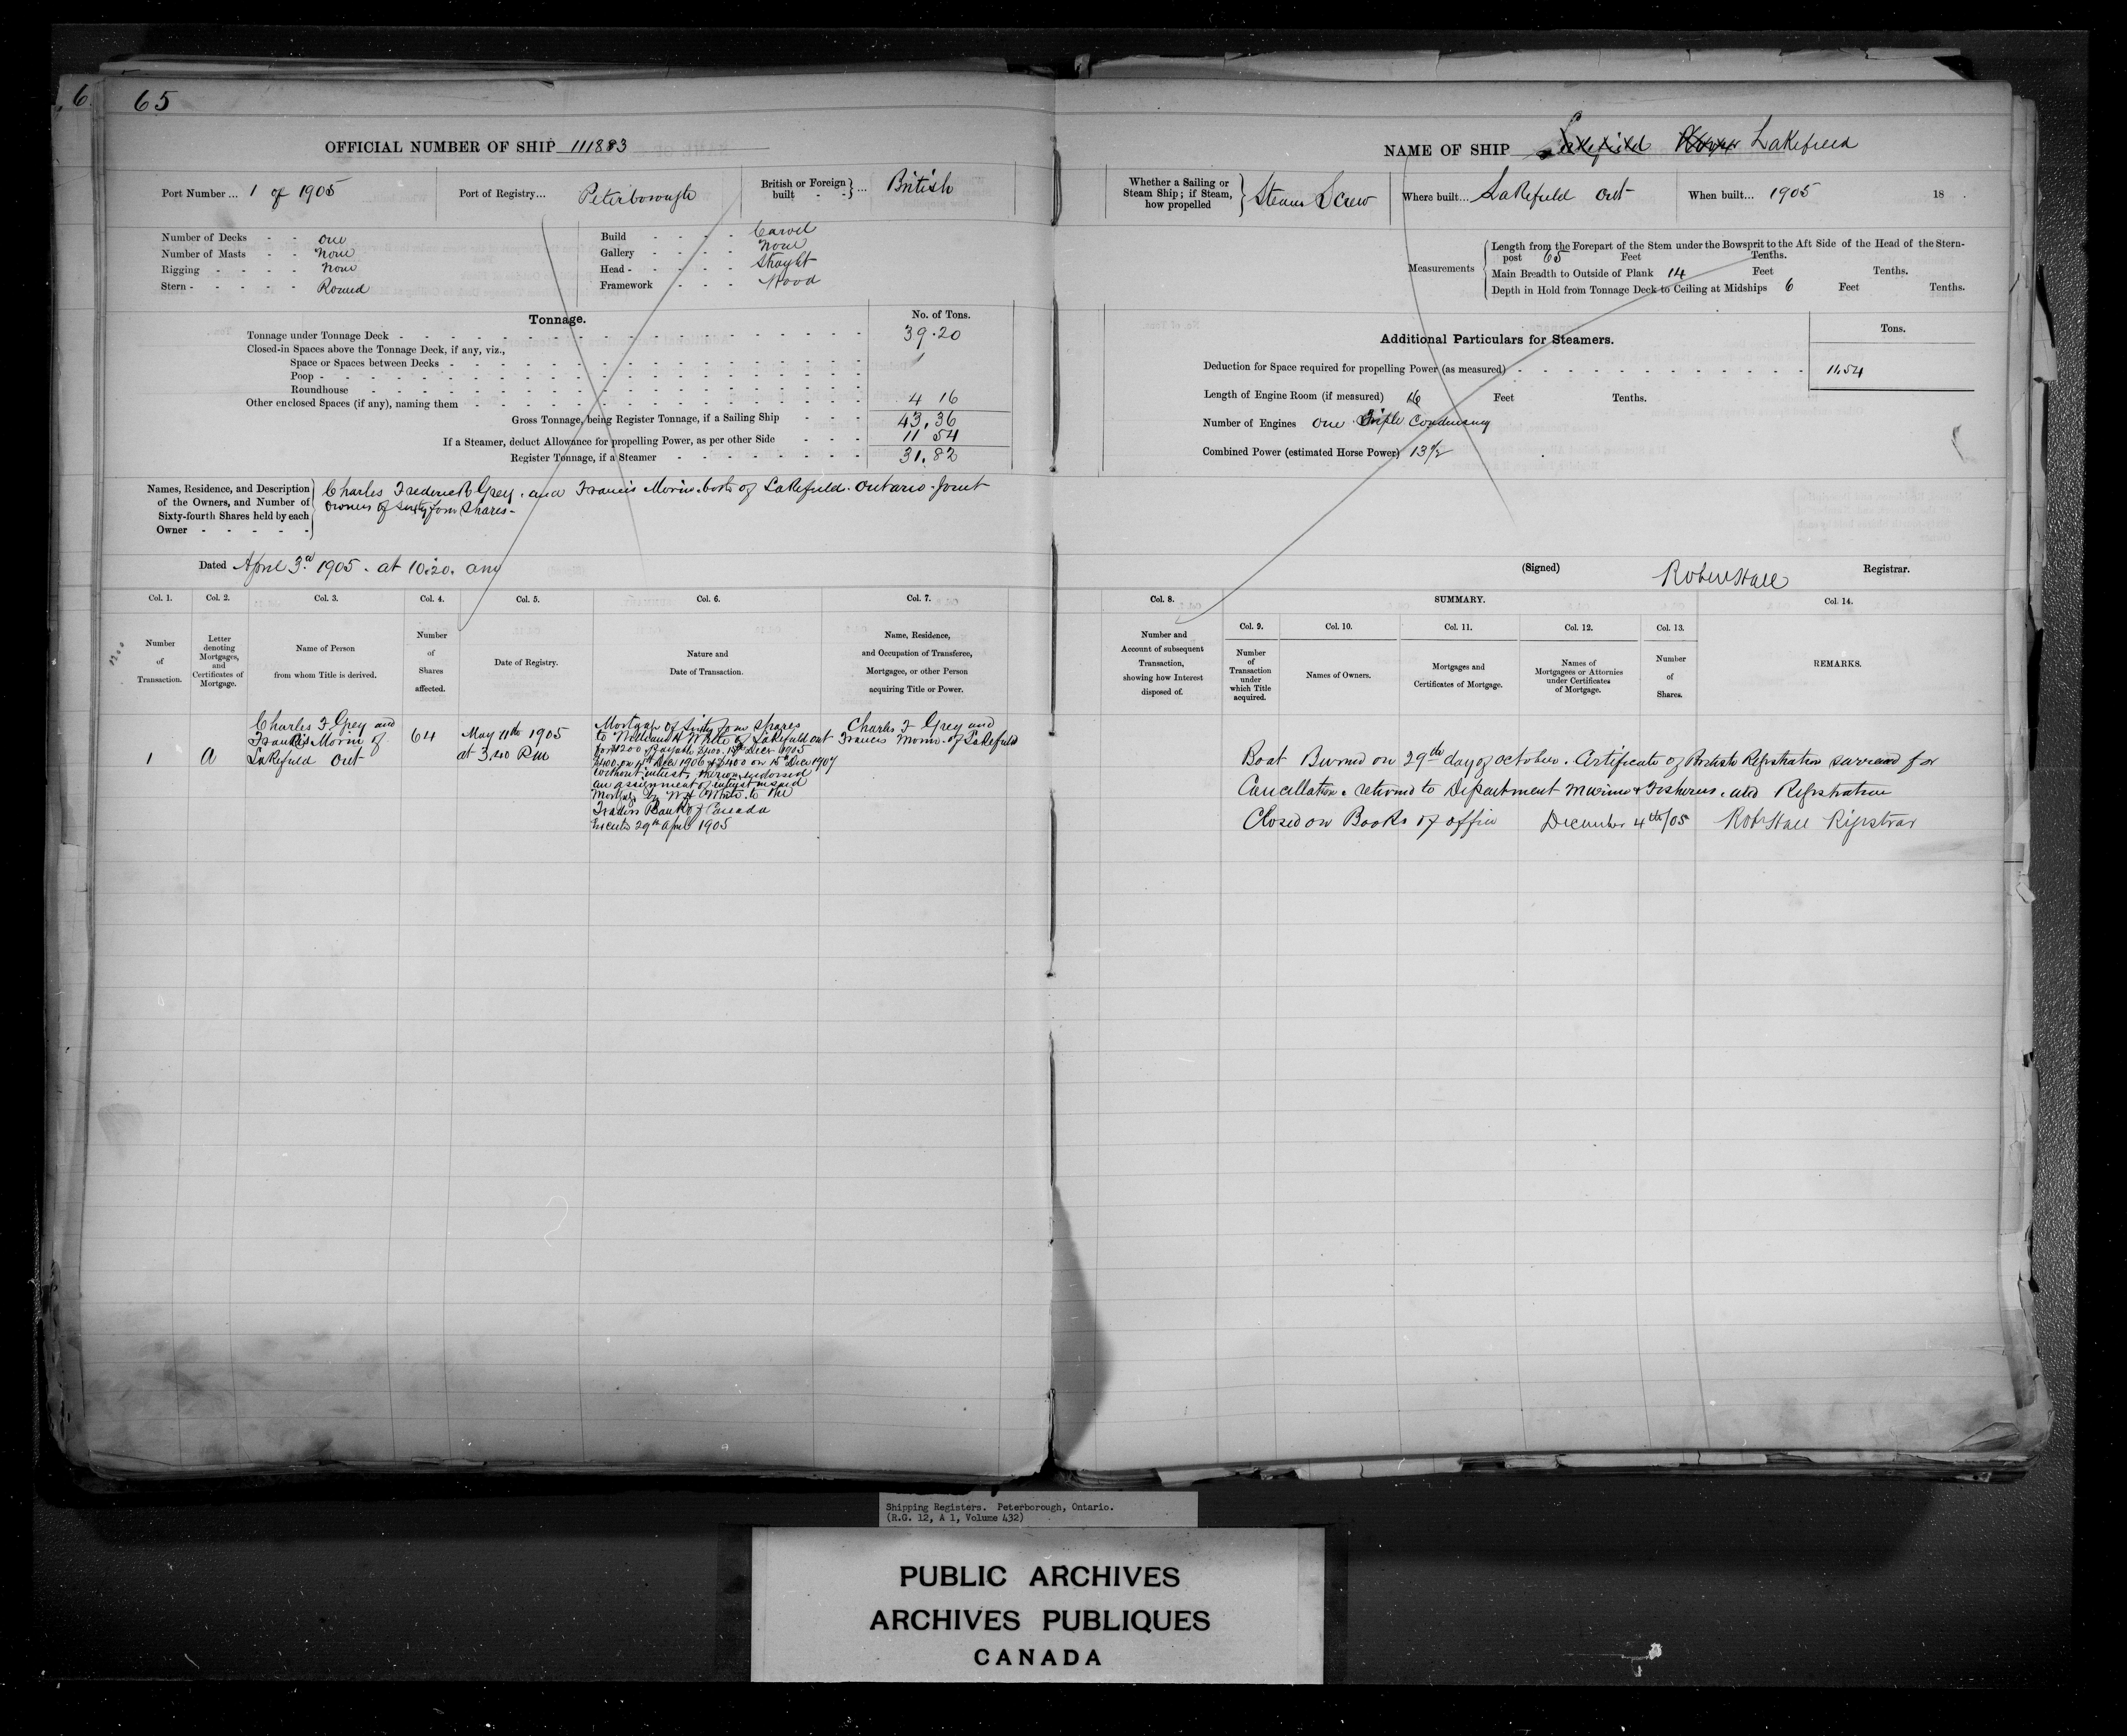 6
65
OFFICIAL NUMBER OF SHIP 111883
Port Number ... 1 of 1905
Port of Registry... Peterborough
British or Foreign built - - } ... British
Number of Decks - - one
Number of Masts - - None
Rigging - - - - None
Stern - - - - - Round
Build - - - - Carvel
Gallery - - - - None
Head - - - - - Straght
Framework - - - Wood
Tonnage.
No. of Tons.
Tonnage under Tonnage Deck 39.20
Closed-in Spaces above the Tonnage Deck, if any, viz.,
Space or Spaces between Decks
Poop
Roundhouse
Other enclosed Spaces (if any), naming them 4 16
Gross Tonnage, being Register Tonnage, if a Sailing Ship 43.36
If a Steamer, deduct Allowance for propelling Power, as per other Side 11 54
Register Tonnage, if a Steamer 31.82
Names, Residence, and Description of the Owners, and Number of Sixty-fourth Shares held by each Owner - - - - -
Charles Frederick Grey. and Francis Morin. both of Lakefield. Ontario. Joint
owners of sixty four shares -
Dated April 3rd 1905. at 10.20. am
Col. 1. Col. 2. Col. 3. Col. 4. Col. 5. Col. 6. Col. 7.
Number of Transaction.
Letter denoting Mortgages, and Certificates of Mortgage.
Name of Person from whom Title is derived.
Number of Shares affected.
Date of Registry.
Nature and Date of Transaction.
Name, Residence, and Occupation of Transferee, Mortgagee, or other Person acquiring Title or Power.
1200
1
A
Charles F Grey and
Francis Morin of
Lakefield Ont
64
May 11th 1905
at 3.40 Pm
Mortgage of Sixty four shares
to William H White of Lakefield ont
for $1200 payable $400. 15th Decr 1905
$400 on 15th Decr 1906 & $400 on 15th Decr 1907
without interest, thereon endorsed
an assignment of interest in said
Mortgage by W H White to the
Traders Bank of Canada
Executed 29th April 1905
Charles F Grey and
Francis Morin of Lakefield
NAME OF SHIP Lakefield Lakefield
Whether a Sailing or Steam Ship; if Steam, how propelled } Steam Screw
Where built... Lakefield Ont
When built... 1905 18 .
Measurements
Length from the Forepart of the Stem under the Bowsprit to the Aft Side of the Head of the Stern-
post 65 Feet Tenths.
Main Breadth to Outside of Plank 14 Feet Tenths.
Depth in Hold from Tonnage Deck to Ceiling at Midships 6 Feet Tenths.
Additional Particulars for Steamers.
Tons.
Deduction for Space required for propelling Power (as measured) 11.54
Length of Engine Room (if measured) 16 Feet Tenths.
Number of Engines One Triple Condensing
Combined Power (estimated Horse Power) 13 1/2
(Signed) Robert Hall Registrar.
Col. 8.
SUMMARY.
Col. 9. Col. 10. Col. 11. Col. 12. Col. 13.
Col. 14.
Number and Account of subsequent Transaction, showing how Interest disposed of.
Number of Transaction under which Title acquired.
Names of Owners.
Mortgages and Certificates of Mortgage.
Names of Mortgagees or Attornies under Certificates of Mortgage.
Number of Shares.
REMARKS.
Boat Burned on 29th day of October. Certificate of British Registration for
Cancellation & returned to Department Marine & Fisheries. and Registration
Closed on Books of office December 4th/05 Robt Hall Registrar
Shipping Registers. Peterborough, Ontario.
(R.G. 12, A 1, Volume 432)
PUBLIC ARCHIVES
ARCHIVES PUBLIQUES
CANADA